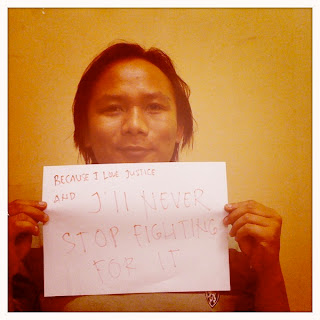 BECAUZE I LOVE JUSTICE
AND I'll NEVER
STOP FIGHTING
FOR IT